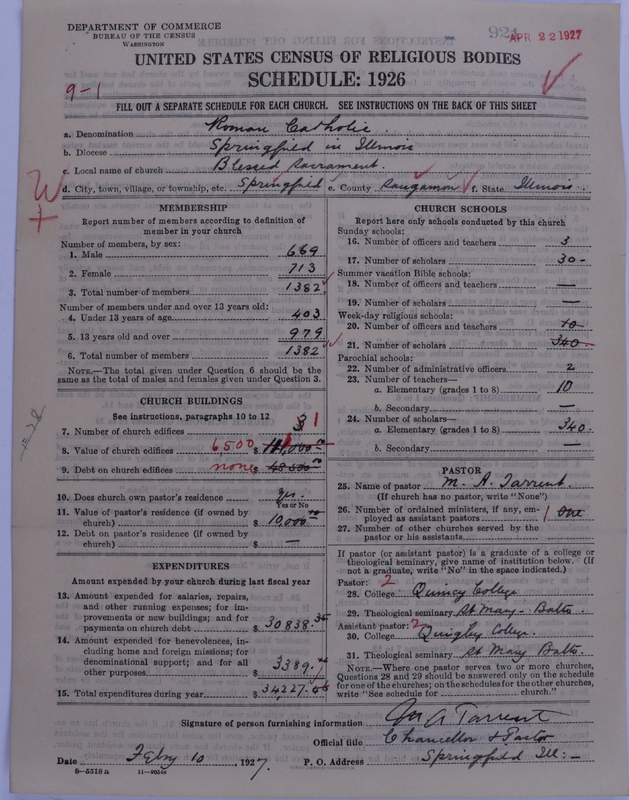 DEPARTMENT OF COMMERCE
BUREAU OF THE CENSUS
WASHINGTON
924
APR 22 1927
UNITED STATES CENSUS OF RELIGIOUS BODIES
SCHEDULE: 1926
9-1
FILL OUT A SEPARATE SCHEDULE FOR EACH CHURCH. SEE INSTRUCTIONS ON THE BACK OF THIS SHEET
a. Denomination Roman Catholic.
b. Diocese Springfield in Illinois
c. Local name of church Blessed Sacrament.
d. City, town, village, or township, etc. Springfield e. County Sangamon f. State Illinois
MEMBERSHIP
Report number of members according to definition of
member in your church
Number of members, by sex:
1. Male 669
2. Female 713
3. Total number of members 1382
Number of members under and over 13 years old:
4. Under 13 years of age 403
5. 13 years old and over 979
6. Total number of members 1382
NOTE.—The total given under Question 6 should be the
same as the total of males and females given under Question 3.
CHURCH BUILDINGS
See instructions, paragraphs 10 to 12
7. Number of church edifices 3 1
8. Value of church edifices 6500 $
9. Debt on church edifices none $ 48500
10. Does church own pastor's residence yes.
Yes or No
11. Value of pastor's residence (if owned by
church) $ 10,000
12. Debt on pastor's residence (if owned by
church) $ —
EXPENDITURES
Amount expended by your church during last fiscal year
13. Amount expended for salaries, repairs,
and other running expenses; for im-
provements or new buildings; and for
payments on church debt $ 30838.
14. Amount expended for benevolences, in-
cluding home and foreign missions; for
denominational support; and for all
other purposes $ 3389.
15. Total expenditures during year $ 34227.
CHURCH SCHOOLS
Report here only schools conducted by this church
Sunday schools:
16. Number of officers and teachers 3
17. Number of scholars 30-
Summer vacation Bible schools:
18. Number of officers and teachers —
19. Number of scholars —
Week-day religious schools:
20. Number of officers and teachers 10
21. Number of scholars 340
Parochial schools:
22. Number of administrative officers 2
23. Number of teachers—
a. Elementary (grades 1 to 8) 10
b. Secondary —
24. Number of scholars—
a. Elementary (grades 1 to 8) 340.
b. Secondary —
PASTOR
25. Name of pastor M. A. Tarrent.
(If church has no pastor, write "None")
26. Number of ordained ministers, if any, em-
ployed as assistant pastors 1 one
27. Number of other churches served by the
pastor or his assistants
If pastor (or assistant pastor) is a graduate of a college or
theological seminary, give name of institution below. (If
not a graduate, write "No" in the space indicated.)
Pastor: 2
28. College Quincy College
29. Theological seminary St Mary - Balto.
Assistant pastor: 2
30. College Quigley College.
31. Theological seminary St Mary Balto.
NOTE.—Where one pastor serves two or more churches,
Questions 28 and 29 should be answered only on the schedule
for one of the churches; on the schedules for the other churches,
write "See schedule for church."
Signature of person furnishing information M A Tarrent
Official title Chancellor & Pastor
Date Feby 10, 1927. P. O. Address Springfield Ill:-
8-5518a 11-9